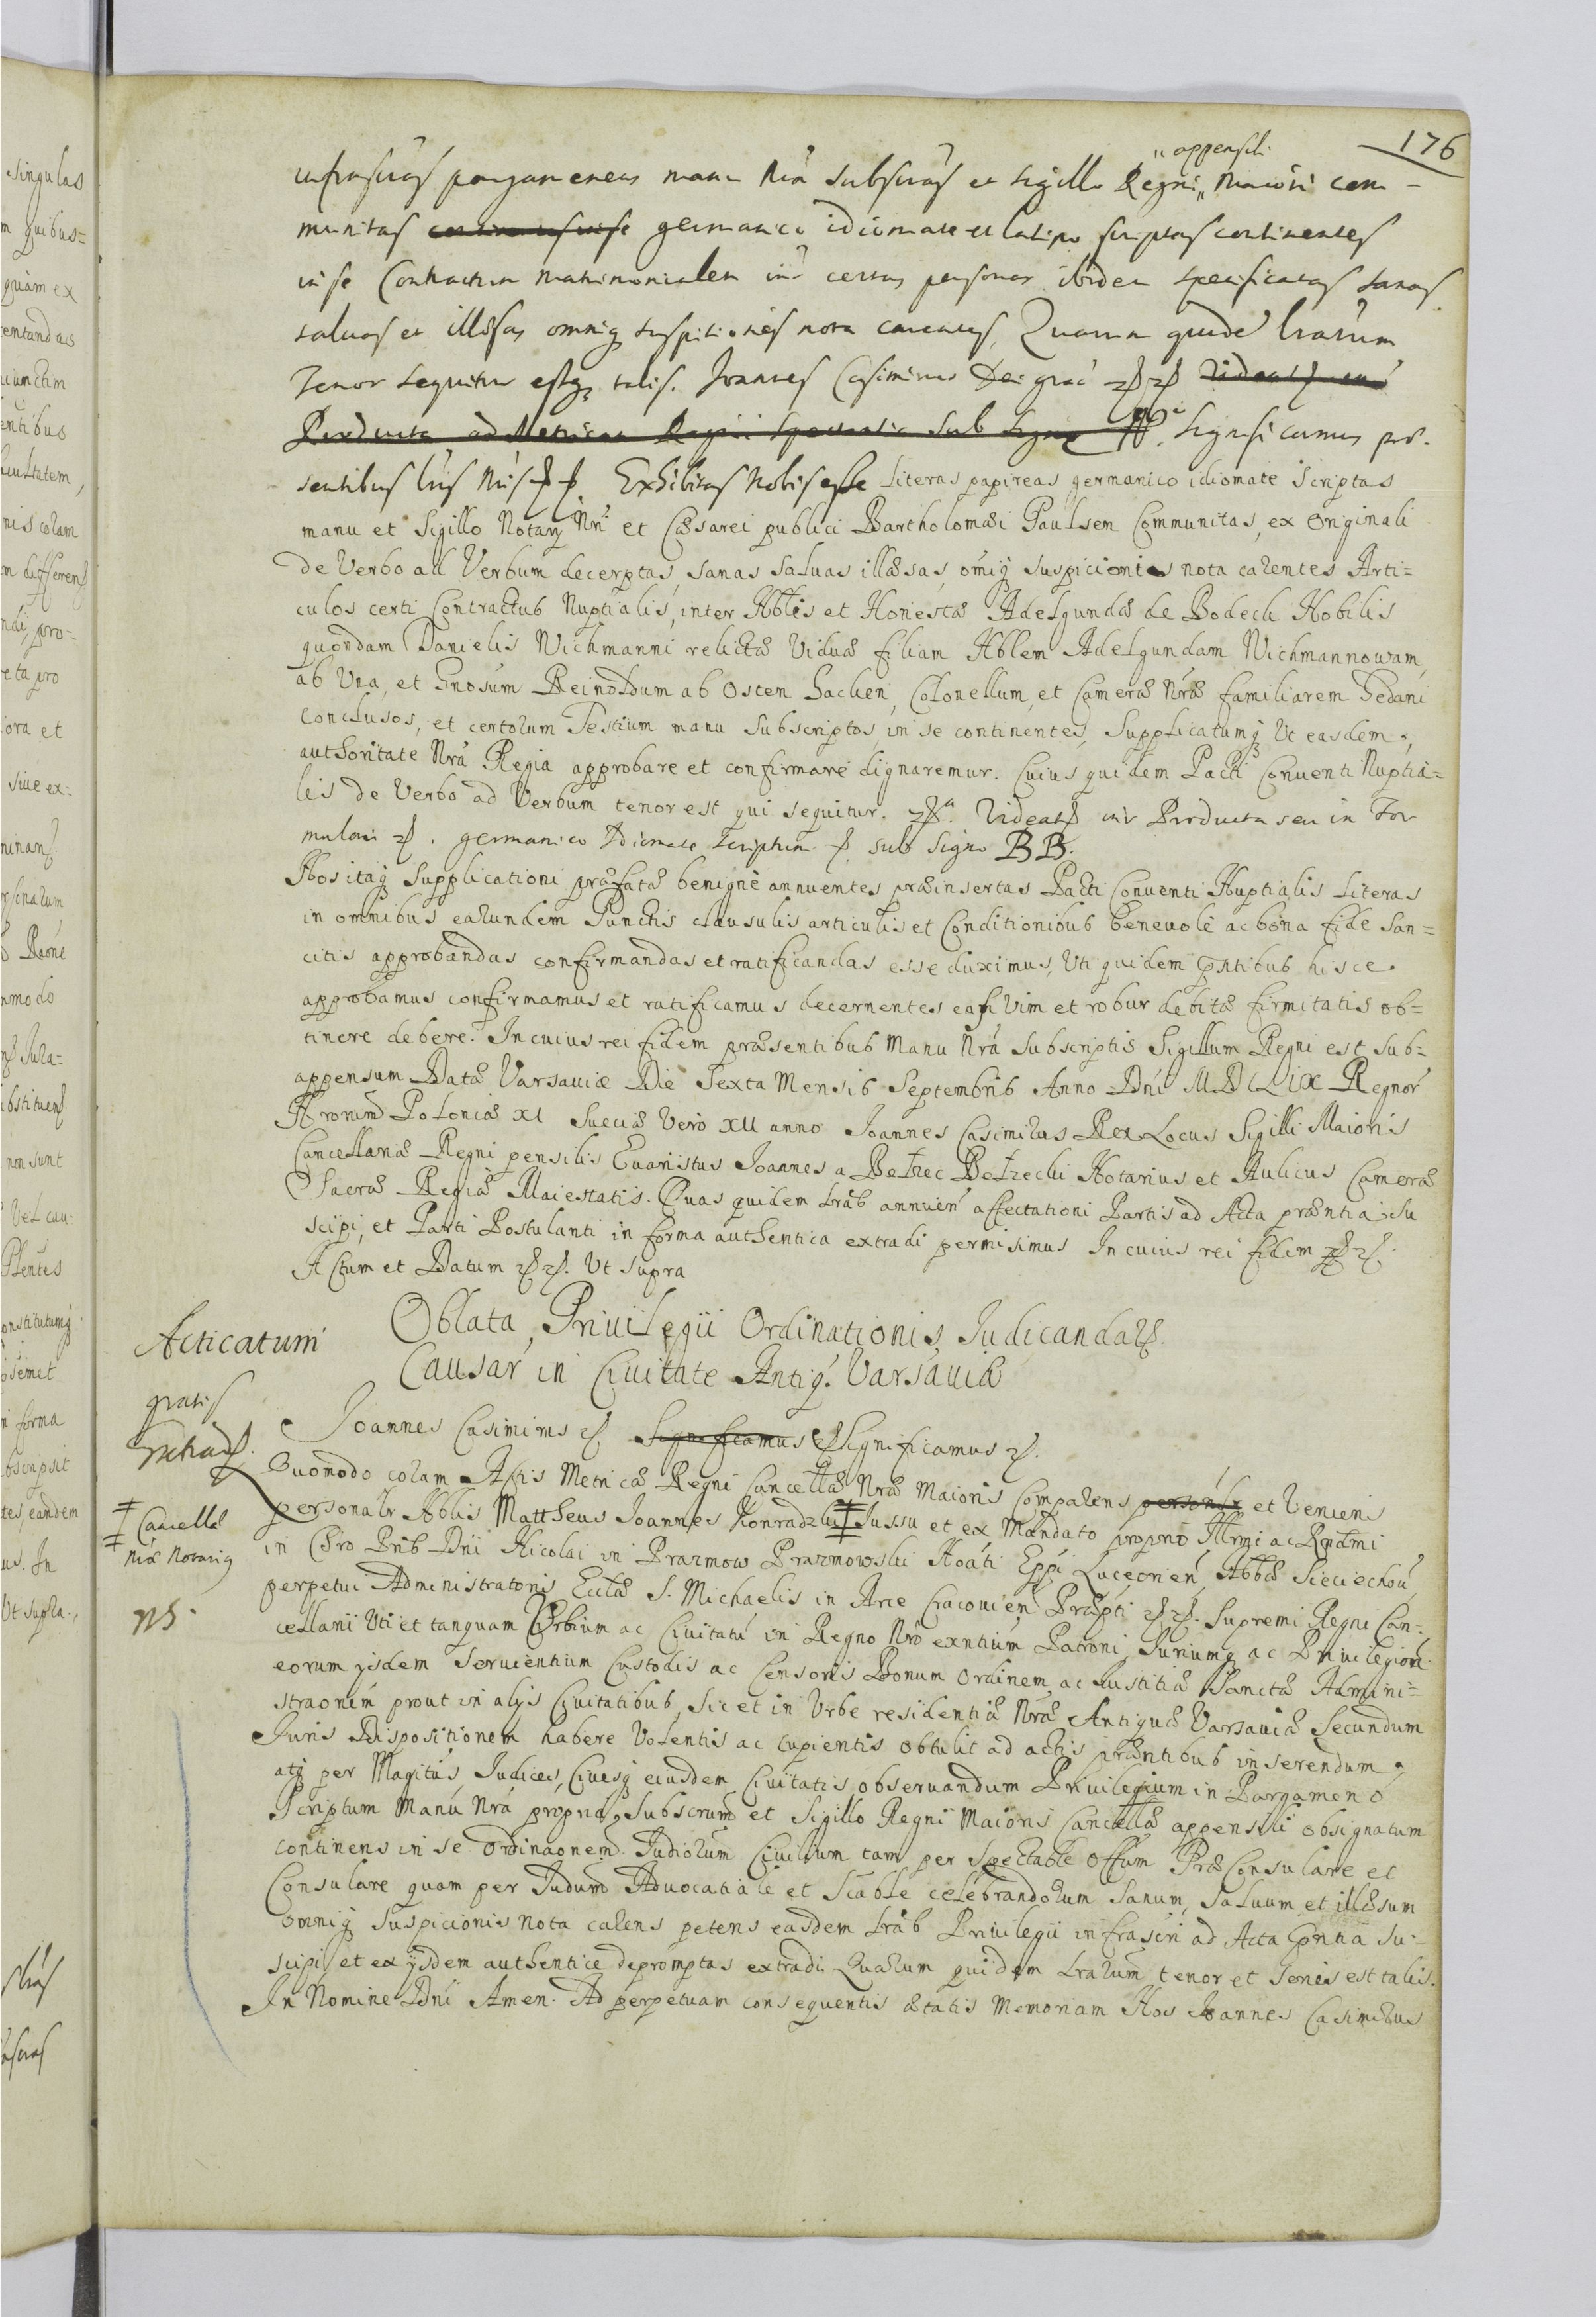 176
appensili
infrascrtas pargameneas manu Nrã subscrtas et sigillo Regni Maiori com-
munitas germanico idiomate et latino scriptas continentes
in se Contractum Matrimonialem intr certas personas ibidem specificatas sanas
saluas et illæsas omniq suspitionis nota carentes, Quarum quidé lrarum
Tenor sequitur estq talis. Joannes Casimirus Dei gra
Producta ad Metricam Regni sub signo significamus præ-
sentibus lris Nris Exhibitas Nobis esse literas papireas germanico idiomate scriptas
manu et Sigillo Notarij Nri et Cæsarei publici Bartholomæi Paulsen Communitas, ex Originali
de Verbo ad Verbum decerptas, sanas saluas illæsas, omiq suspicionis nota carentes Arti=
culos certi Contractus Nuptialis, inter Nblis et Honestæ Adelgundæ de Bodeck Nobilis
quondam Danielis Wichmanni relictæ Viduæ filiam Nblem Adelgundam Wichmannowam,
ab Vna, et Gnosum Reinoldum ab Osten Sacken, Colonellum, et Cameræ Nræ familiarem Gedani
Conclusos, et certorum Testium manu Subscriptos, in se continentes, Supplicatumq Vt easdem
authoritate Nrã Regia approbare et confirmare dignaremur. Cuius quidem Pacti Conuenti Nuptia=
lis de Verbo ad Verbum tenor est qui sequitur. Videat inr Producta seu in For
mulari germanico Idiomate scriptum sub signo BB.
Nos itaq Supplicationi præfatæ benignè annuentes præinsertas Pacti Conuenti Nuptialis Literas
in omnibus earundem Punctis clausulis articulis et Conditionibus beneuolè ac bona fide San=
citis approbandas confirmandas et ratificandas esse duximus, Vti quidem pntibus hisce
approbamus confirmamus et ratificamus decernentes eas Vim et robur debitæ firmitatis ob=
tinere debere. In cuius rei fidem præsentibus Manu Nrã Subscriptis Sigillum Regni est Sub=
appensum Data Varsauiæ Die Sexta Mensis Septembris Anno Dni MDCLIX Regnor
Nrorum Poloniæ XI Sueciæ Verò XII anno Joannes Casimirus Rex Locus Sigilli Maioris
Cancellariæ Regni pensilis Euaristus Joannes a Bełzec Bełzecki Notarius et Aulicus Cameræ
Sacræ Regiæ Maiestatis. Quas quidem lras annuen affectationi Partis ad Acta præntia Su
scipi, et Parti Postulanti in forma authentica extradi permisimus In cuius rei fidem
Actum et Datum Vt supra
Acticatum
Oblata Priuilegii Ordinationis Iudicandar
Causar in Ciuitate Antiq. Varsauiæ
gratis
Joannes Casimirus Significamus Significamus
Quomodo coram Actis Metricæ Regni Cancellæ Nræ Maioris Comparens personlr et Veniens
personalr Nblis Mattheus Joannes Konradzki Jussu et ex Mandato proprio Illrmi ac Rndmi
Cancellæ
Nræ Notariq
in Chro Pris Dni Nicolai in Prazmow Prazmowski Noati Eppi Luceorien Abbæ Sieciechou
perpetui Administratoris Ecclæ S. Michaelis in Arce Cracouien Præpti Supremi Regni Can=
NS.
cellarii Vti et tanquam Vrbium ac Ciuitatu in Regno Nro exntium Patroni Juriumq ac Priuilegior
eorum ijsdem Seruientium Custodis ac Censoris Bonum Ordinem ac Iustitiæ Sanctæ Admini=
straonem prout in alijs Ciuitatibus, Sic et in Vrbe residentiæ Nræ Antiquæ Varsauiæ Secundum
Juris Dispositionem habere Volentis ac cupientis obtulit ad actis præntibus inserendum
atq per Magitus, Iudices, Ciuesq eiusdem Ciuitatis obseruandum Priuilegium in Pargameno
Scriptum Manu Nrã propria Subscrum et Sigillo Regni Maioris Cancellæ appensili obsignatum
continens in se Ordinaonem Iudiorum Ciuilium tam per Spectable Offum Præ Consulare et
Consulare quam per Iudum Aduocatiale et Scable celebrandorum Sanum, Saluum et illæsum
Omniq Suspicionis nota carens petens easdem Lras Priuilegii infrascri ad Acta pntia Su=
scipi et ex ijsdem authentice depromptas extradi. Quarum quidem Lrarum tenor et Series est talis.
In Nomine Dni Amen. Ad perpetuam consequentis ætatis Memoriam Nos Joannes Casimirus